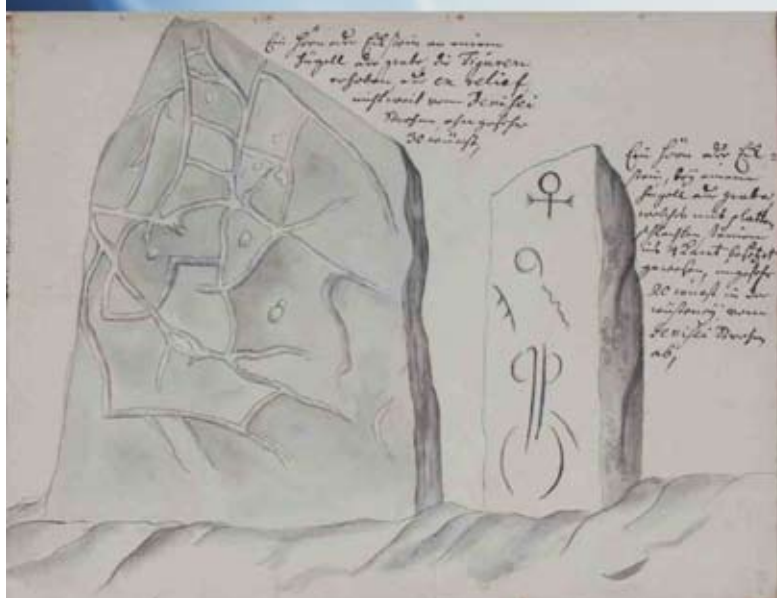 Ein Hörn oder Eckstein an einem
hügell oder grabe, die Figuren
erhoben oder en relief,
nicht weit vom Jenisei
Strohm ohngefehr
30 würst,
Ein hörn oder Eck=
stein, bey einem
hügell oder grabe
welches mit platten
schlechten Steinen
ins 4kant besetzet
gewesen, ungefehr
20 würst in der
wüsteney vom
Jenisei Strohm
ab,